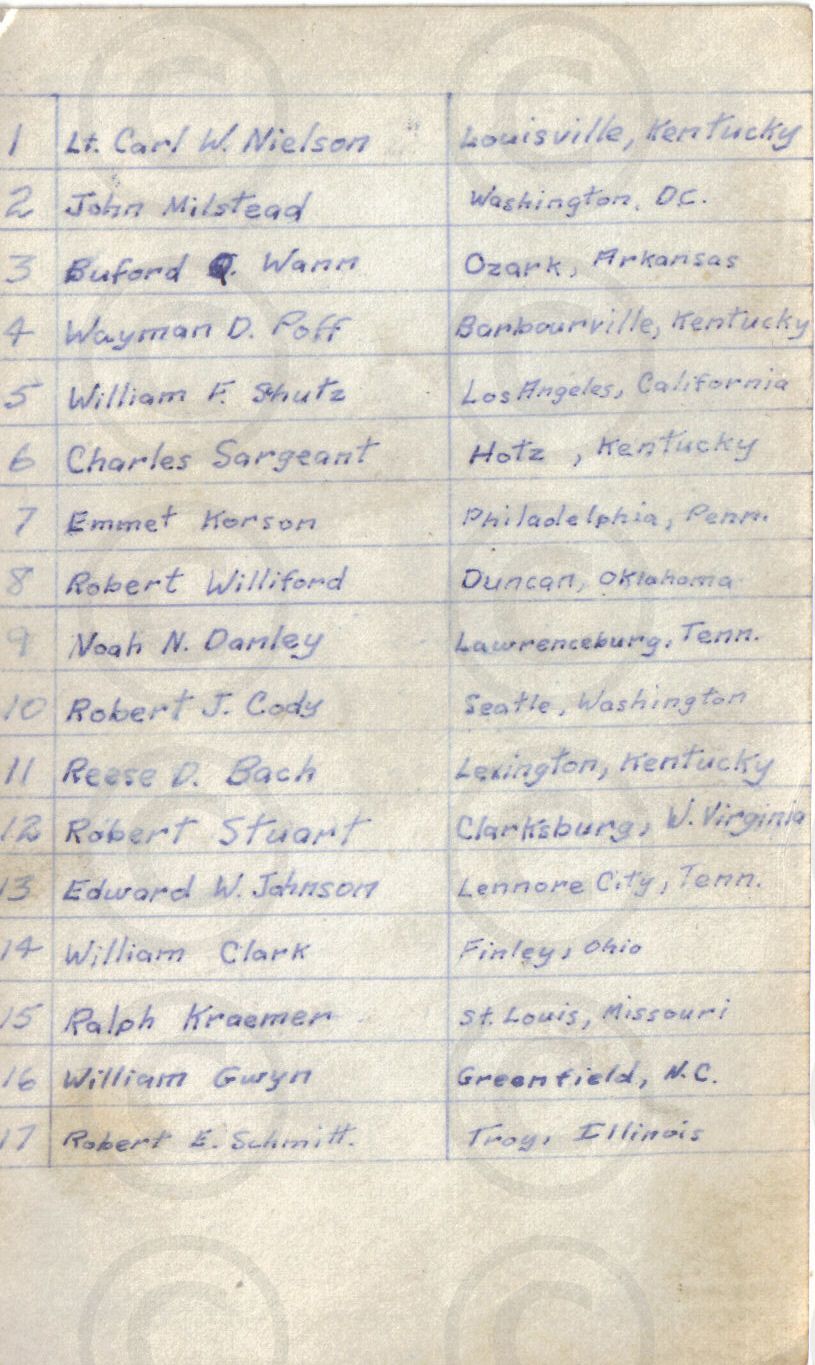 1 Lt. Carl W. Nielson Louisville, Kentucky
2 John Milstead Washington, D.C.
3 Buford Q. Wann Ozark, Arkansas
4 Wayman D. Poff Barbourville, Kentucky
5 William F. Shutz Los Angeles, California
6 Charles Sargeant Hotz, Kentucky
7 Emmet Korson Philadelphia, Penn.
8 Robert Williford Duncan, Oklahoma
9 Noah N. Danley Lawrenceburg, Tenn.
10 Robert J. Cody Seatle, Washington
11 Reese D. Bach Lexington, Kentucky
12 Robert Stuart Clarksburg, W. Virginia
13 Edward W. Johnson Lennore City, Tenn.
14 William Clark Finley, Ohio
15 Ralph Kraemer St. Louis, Missouri
16 William Gwyn Greenfield, N.C.
17 Robert E. Schmitt. Troy, Illinois